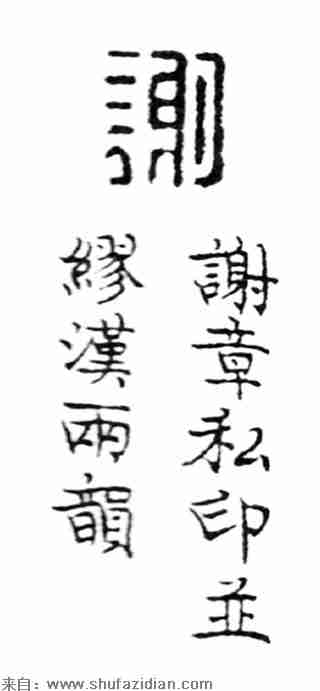 謝
謝章私印並
繆漢兩韻
来自：www.shufazidian.com